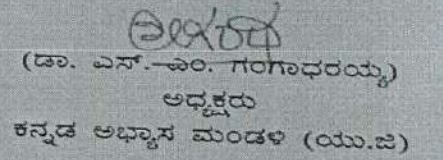 (ಡಾ. ಎಸ್. ಎಂ. ಗಂಗಾಧರಯ್ಯ)
ಅಧ್ಯಕ್ಷರು
ಕನ್ನಡ ಅಭ್ಯಾಸ ಮಂಡಳಿ (ಯು.ಜಿ)